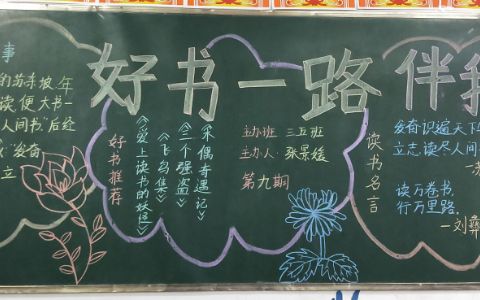 好书一路伴我
事
的苏东坡年
读,便大书一
人间书"后经
"发奋
立
好书推荐
《爱上读书的妖怪》
《飞鸟集》
《三个强盗》
《木偶奇遇记》
主办班 三五班
主办人:张景媛
第九期
读书名言
发奋识遍天下
立志读尽人间
读万卷书,
行万里路.
—刘彝